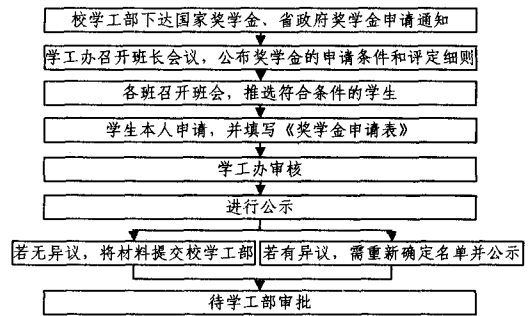 校学工部下达国家奖学金、省政府奖学金申请通知
学工办召开班长会议，公布奖学金的申请条件和评定细则
各班召开班会，推选符合条件的学生
学生本人申请，并填写《奖学金申请表》
学工办审核
进行公示
若无异议，将材料提交校学工部
若有异议，需重新确定名单并公示
待学工部审批